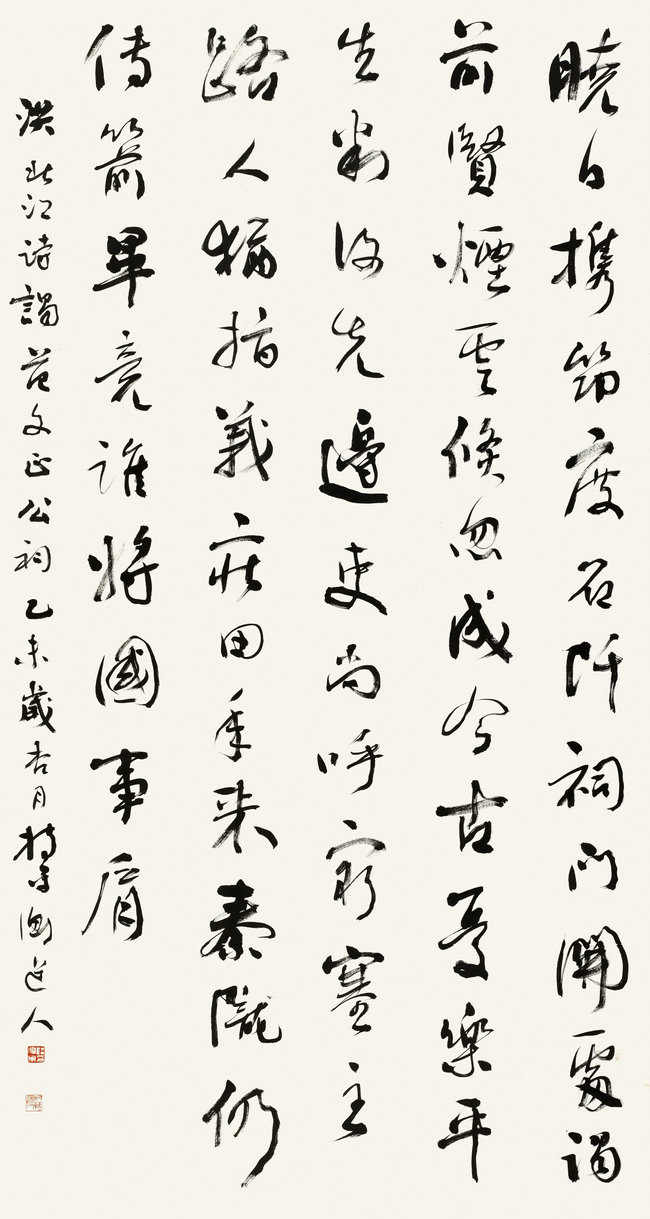 曉日携筇度石阡祠門開處謁
前賢煙雲倏忽成今古憂樂平
生判後先邊吏尚呼窮塞主
路人猶指義莊田年來秦隴仍
傳箭畢竟誰將國事肩
洪北江詩謁范文正公祠乙未歲杏月道人